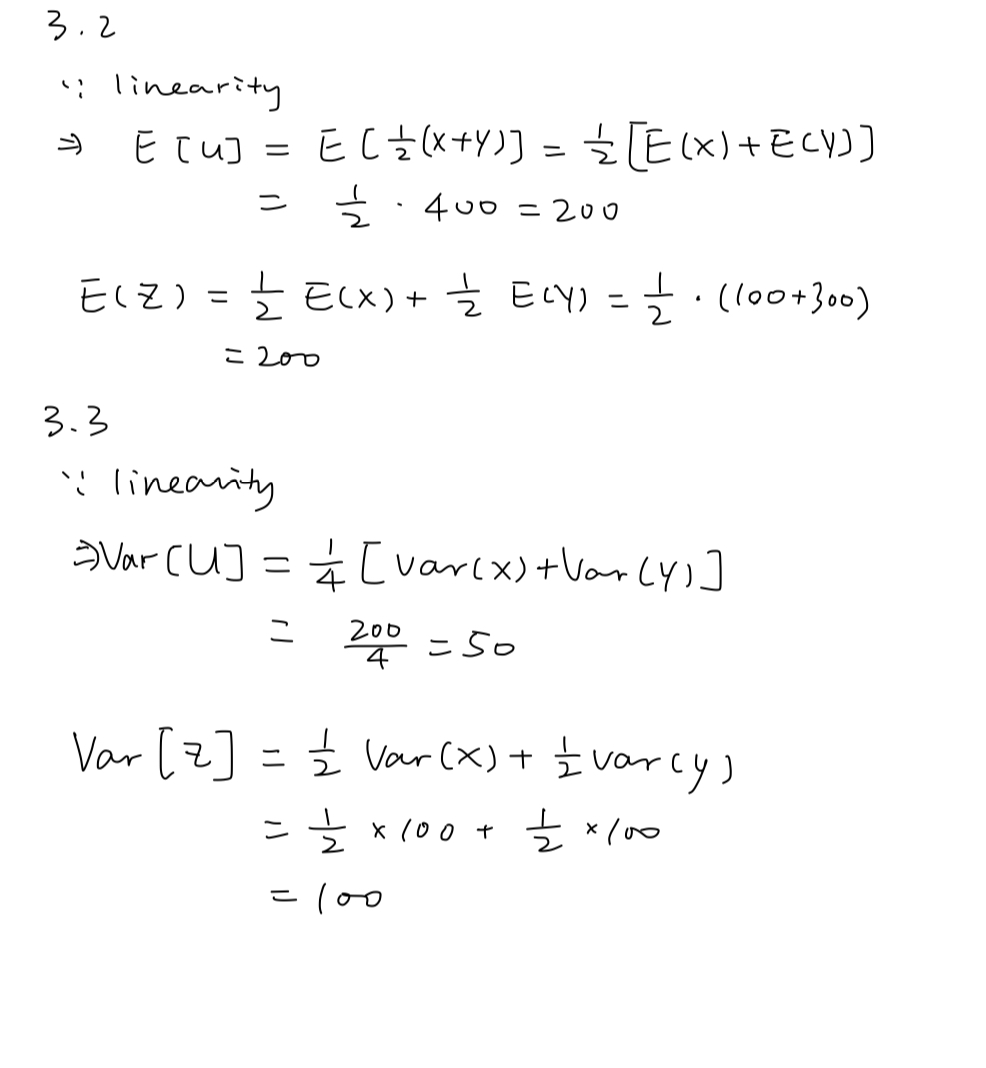 3.2
∵ linearity
⇒ E[U] = E[½(X+Y)] = ½[E(X)+E(Y)]
= ½ · 400 = 200
E(Z) = ½ E(X) + ½ E(Y) = ½ · (100+300)
= 200
3.3
∵ linearity
⇒ Var[U] = ¼[Var(X)+Var(Y)]
= 200/4 = 50
Var[Z] = ½ Var(X) + ½ Var(y)
= ½ × 100 + ½ × 100
= 100